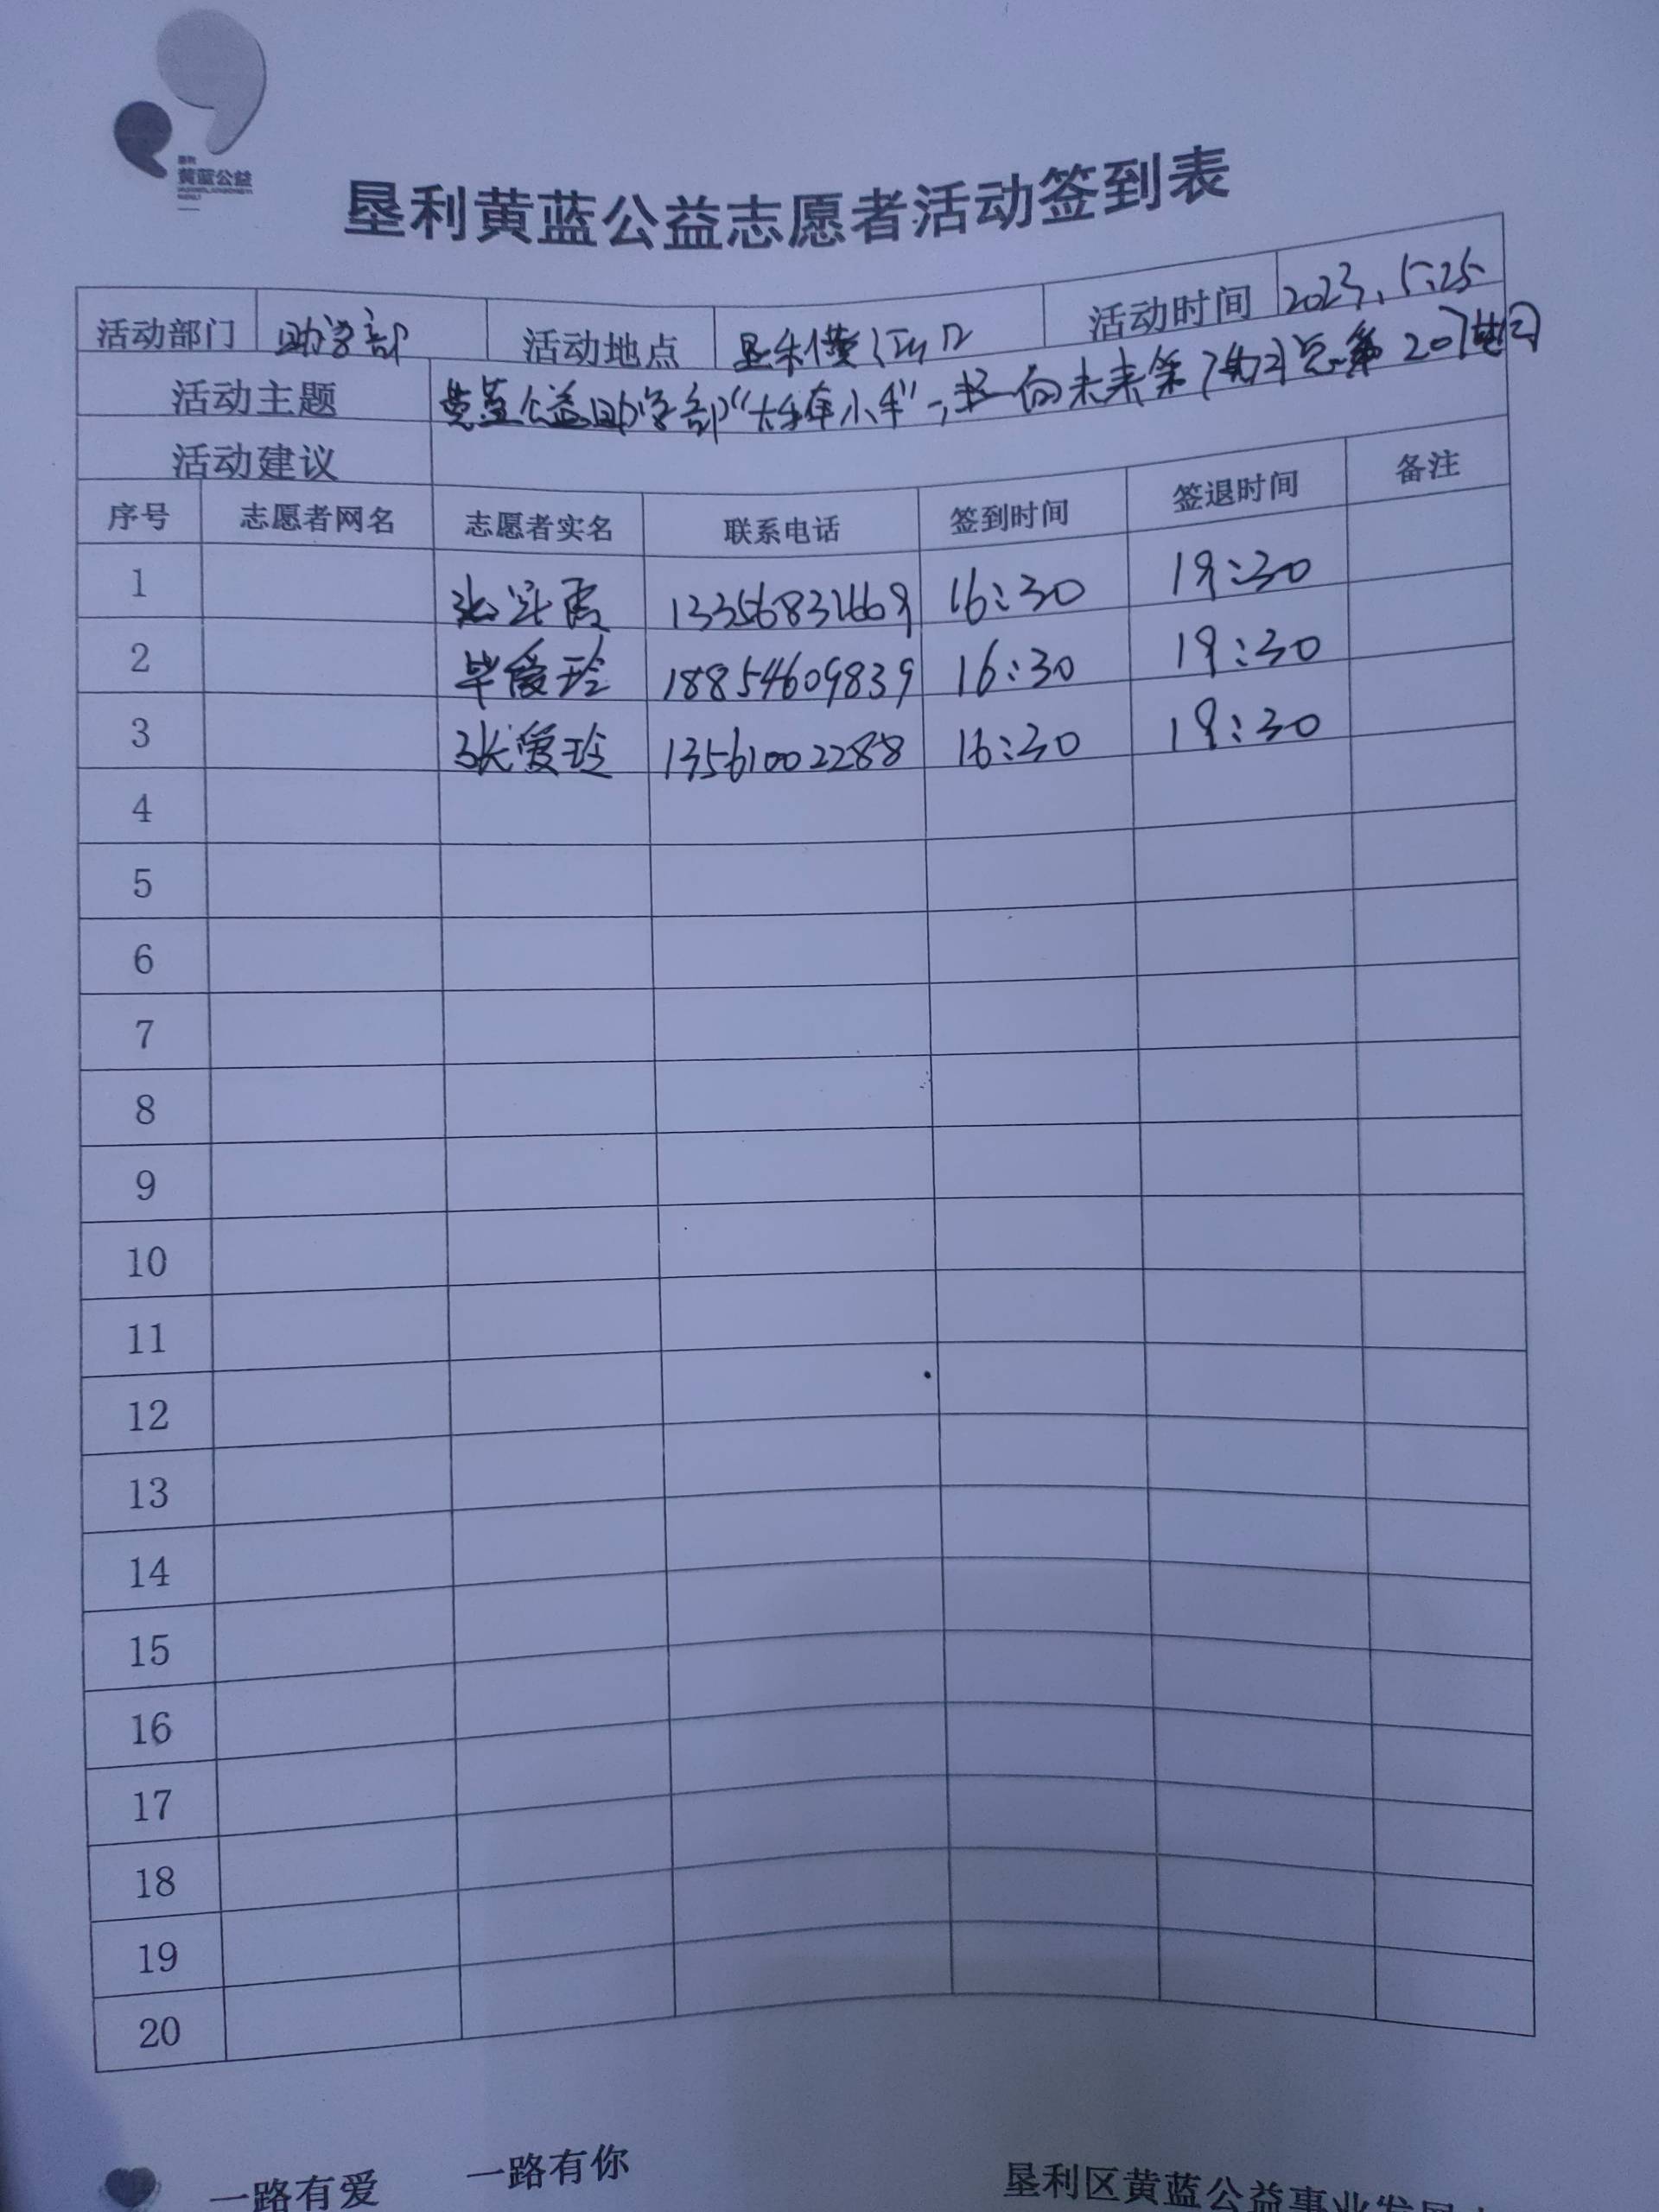 黄蓝公益
垦利黄蓝公益志愿者活动签到表
活动部门 助学部 活动地点 活动时间 2023.5.25
活动主题 黄蓝公益助学部“大手牵小手”一起向未来第 期 总第 207
活动建议
序号 志愿者网名 志愿者实名 联系电话 签到时间 签退时间 备注
1 霞 16:30 19:30
2 毕爱玲 18854609839 16:30 19:30
3 张爱玲 13561002288 16:30 19:30
4
5
6
7
8
9
10
11
12
13
14
15
16
17
18
19
20
一路有爱 一路有你
垦利区黄蓝公益事业发展